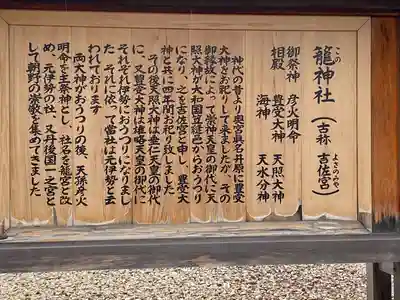 籠神社(古称 吉佐宮)
この
よさのみや
御祭神 彦火明命
相殿 豊受大神 天照大神
海神 天水分神
神代の昔より奥宮眞名井原に豊受
大神をお祀りして来ましたが その
御縁故によって崇神天皇の御代に天
照大神が大和国笠縫邑からおうつり
になり、之を吉佐宮と申し、豊受大
神と共に四年間お祀り致しました
その後天照大神は垂仁天皇の御代
に、又豊受大神は雄略天皇の御代に
それぞれ伊勢におうつりになりまし
た それに依って當社は元伊勢と云
われております
両大神がおうつりの後、天孫彦火
明命を主祭神とし、社名を籠宮と改
め、元伊勢の社、又丹後国一之宮と
して朝野の崇敬を集めてきました